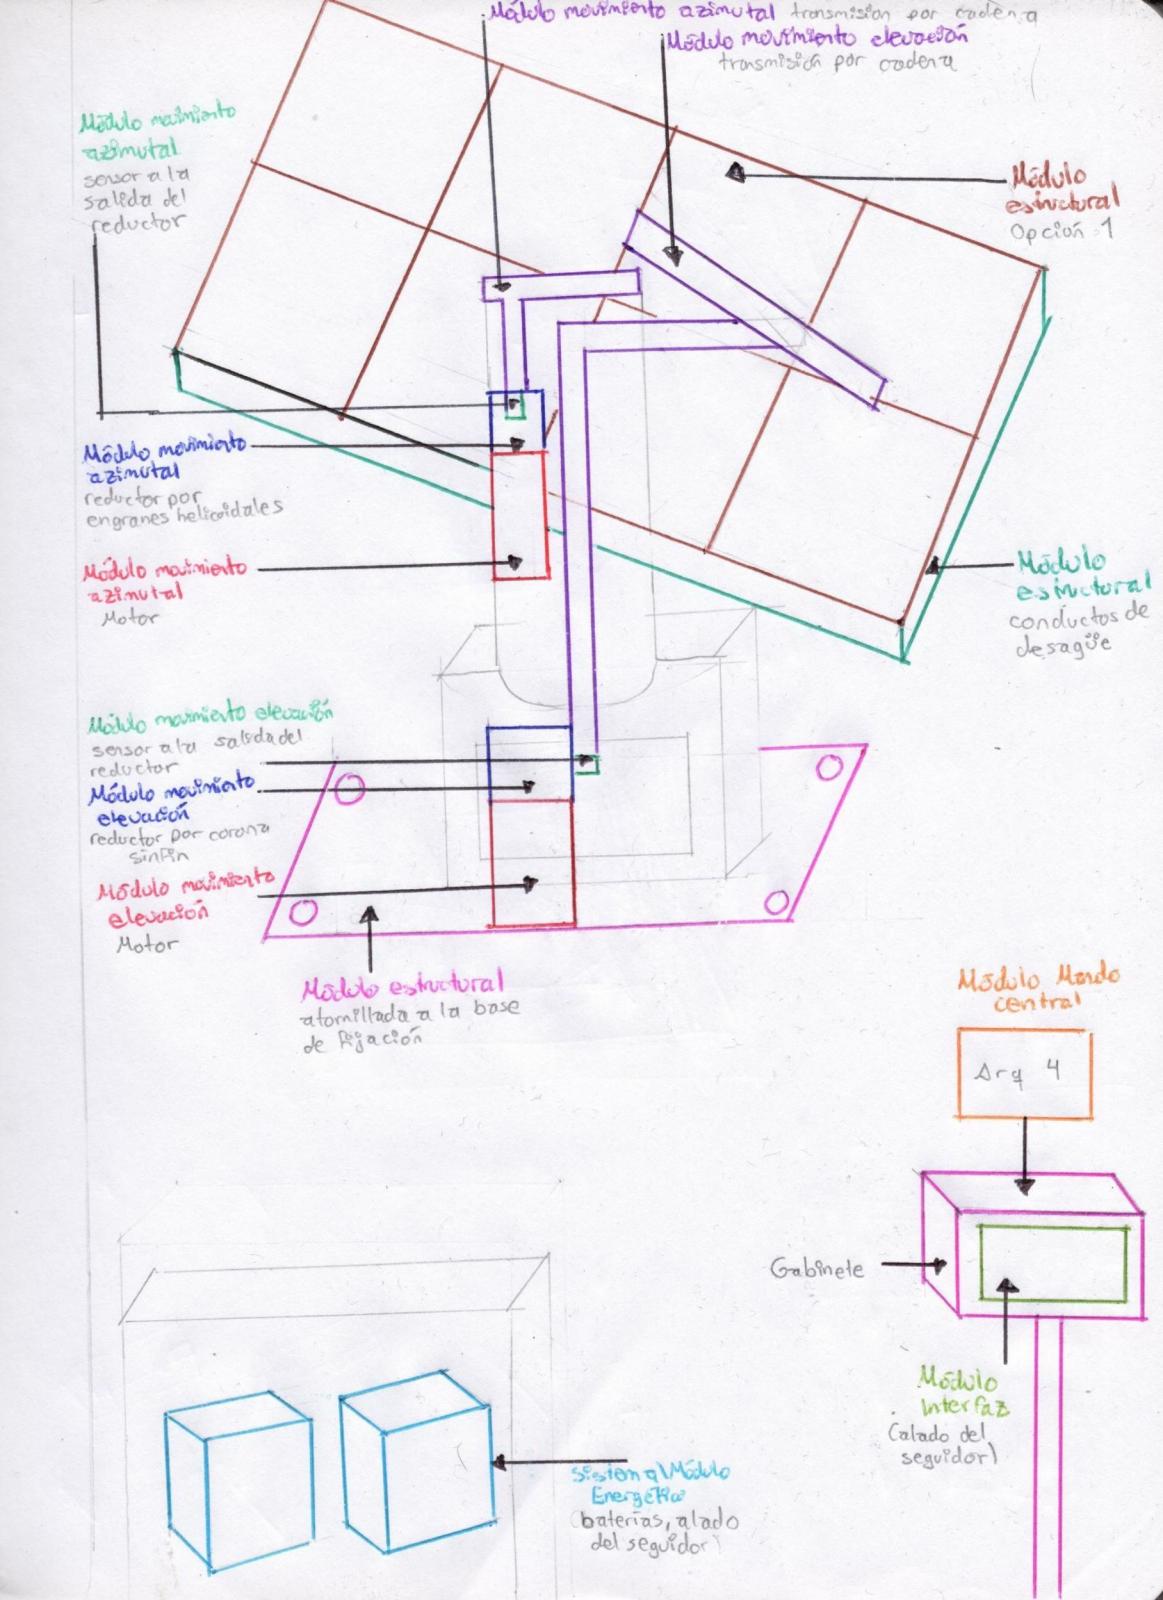 Módulo movimiento azimutal transmision por cadena
Módulo movimiento elevación
transmisión por cadena
Módulo movimiento
azimutal
sensor a la
salida del
reductor
Módulo
estructural
Opción 1
Módulo movimiento
azimutal
reductor por
engranes helicoidales
Módulo movimiento
azimutal
Motor
Módulo
estructural
conductos de
desagüe
Módulo movimiento elevación
sensor a la salida del
reductor
Módulo movimiento
elevación
reductor por corona
sinfin
Módulo movimiento
elevación
Motor
Módulo estructural
atornillada a la base
de fijación
Módulo Mando
central
Arq 4
Gabinete
Módulo
Interfaz
(alado del
seguidor)
Sistema/Módulo
Energético
(baterías, alado
del seguidor)